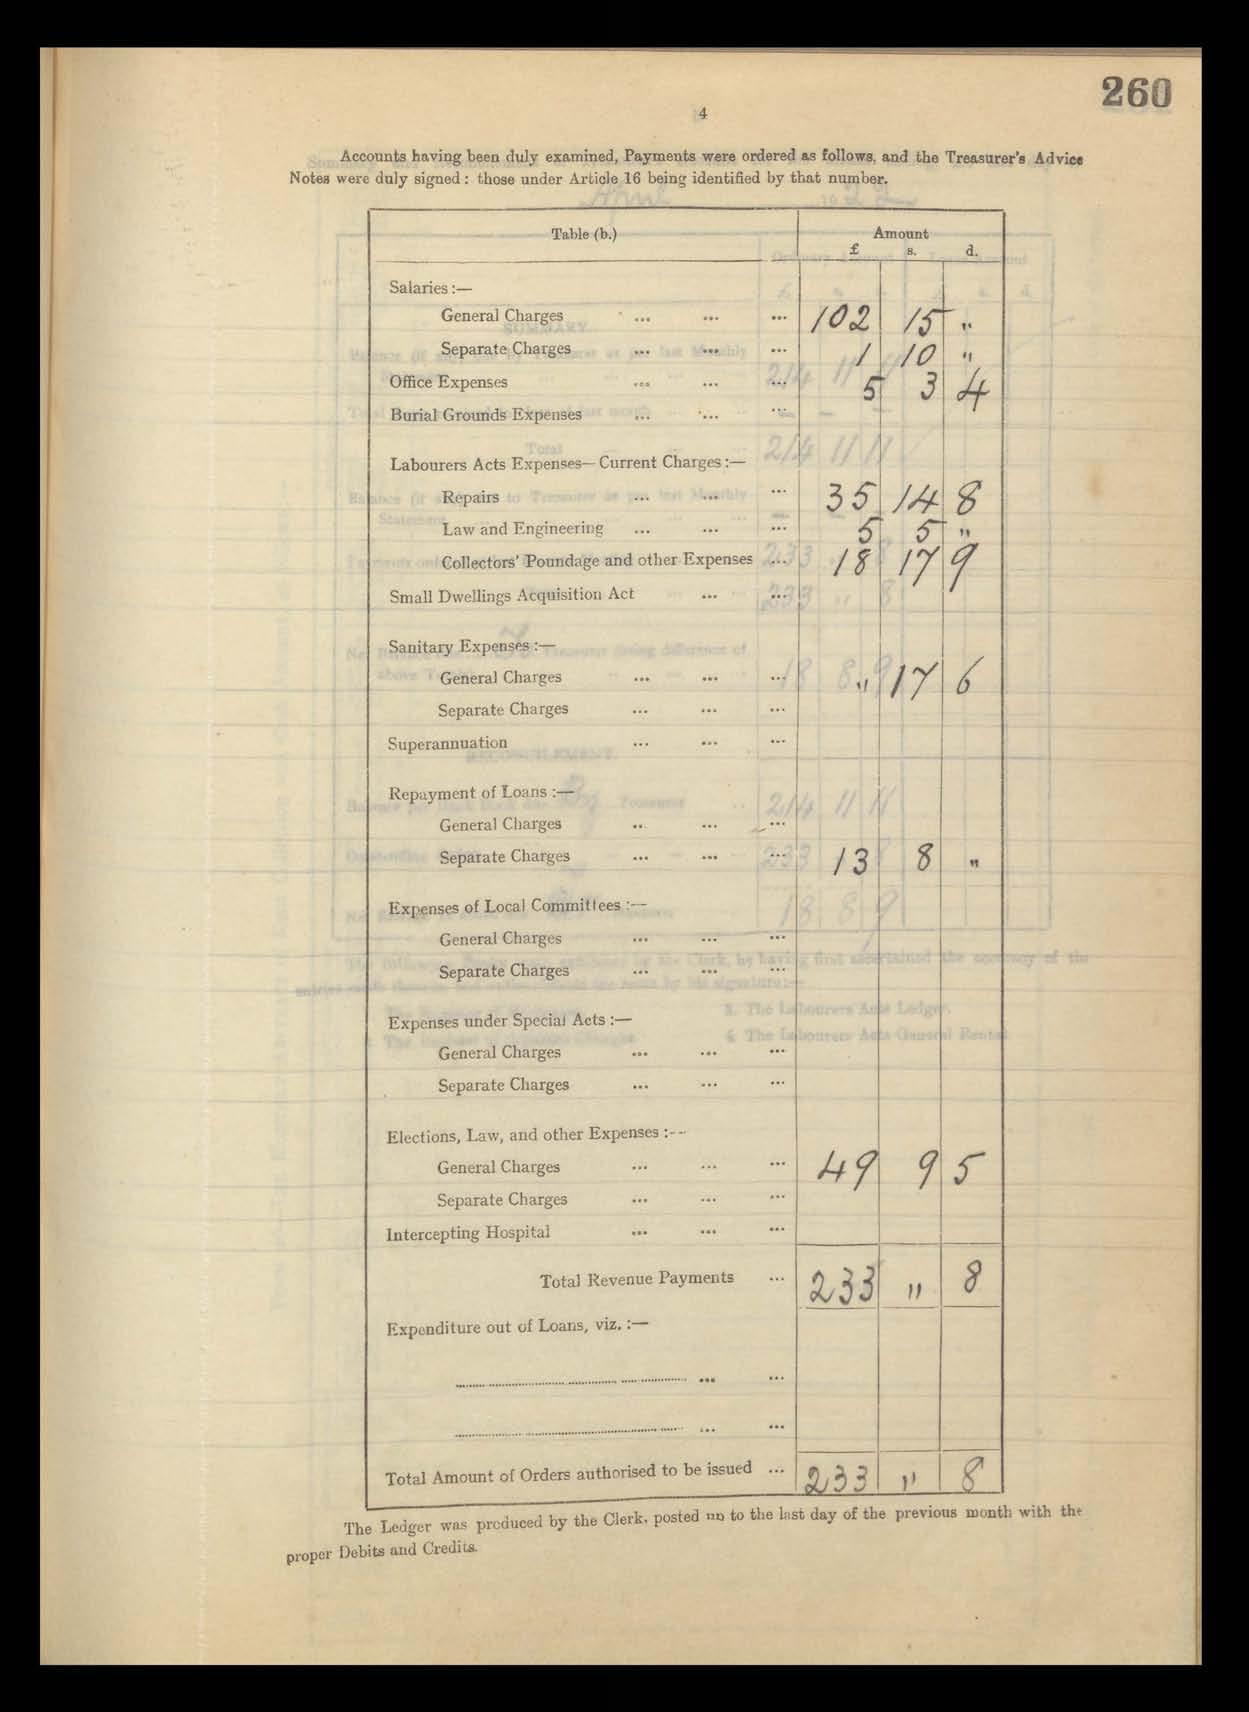 260
4
Accounts having been duly examined, Payments were ordered as follows, and the Treasurer's Advice
Notes were duly signed : those under Article 16 being identified by that number.
Table (b.) Amount
£ s. d.
Salaries :—
General Charges ... ... ... 102 15 "
Separate Charges ... ... ... 1 10 "
Office Expenses ... ... ... 5 3 4
Burial Grounds Expenses ... ... ...
Labourers Acts Expenses—Current Charges :—
Repairs ... ... ... 35 14 8
Law and Engineering ... ... ... 5 5 "
Collectors' Poundage and other Expenses ... 18 17 9
Small Dwellings Acquisition Act ... ...
Sanitary Expenses :—
General Charges ... ... ... " 17 6
Separate Charges ... ... ...
Superannuation ... ... ...
Repayment of Loans :—
General Charges ... ... ...
Separate Charges ... ... ... 13 8 "
Expenses of Local Committees :—
General Charges ... ... ...
Separate Charges ... ... ...
Expenses under Special Acts :—
General Charges ... ... ...
Separate Charges ... ... ...
Elections, Law, and other Expenses :--
General Charges ... ... ... 49 9 5
Separate Charges ... ... ...
Intercepting Hospital ... ... ...
Total Revenue Payments ... 233 " 8
Expenditure out of Loans, viz. :—
... ...
... ...
Total Amount of Orders authorised to be issued ... 233 " 8
The Ledger was produced by the Clerk, posted up to the last day of the previous month with the
proper Debits and Credits.